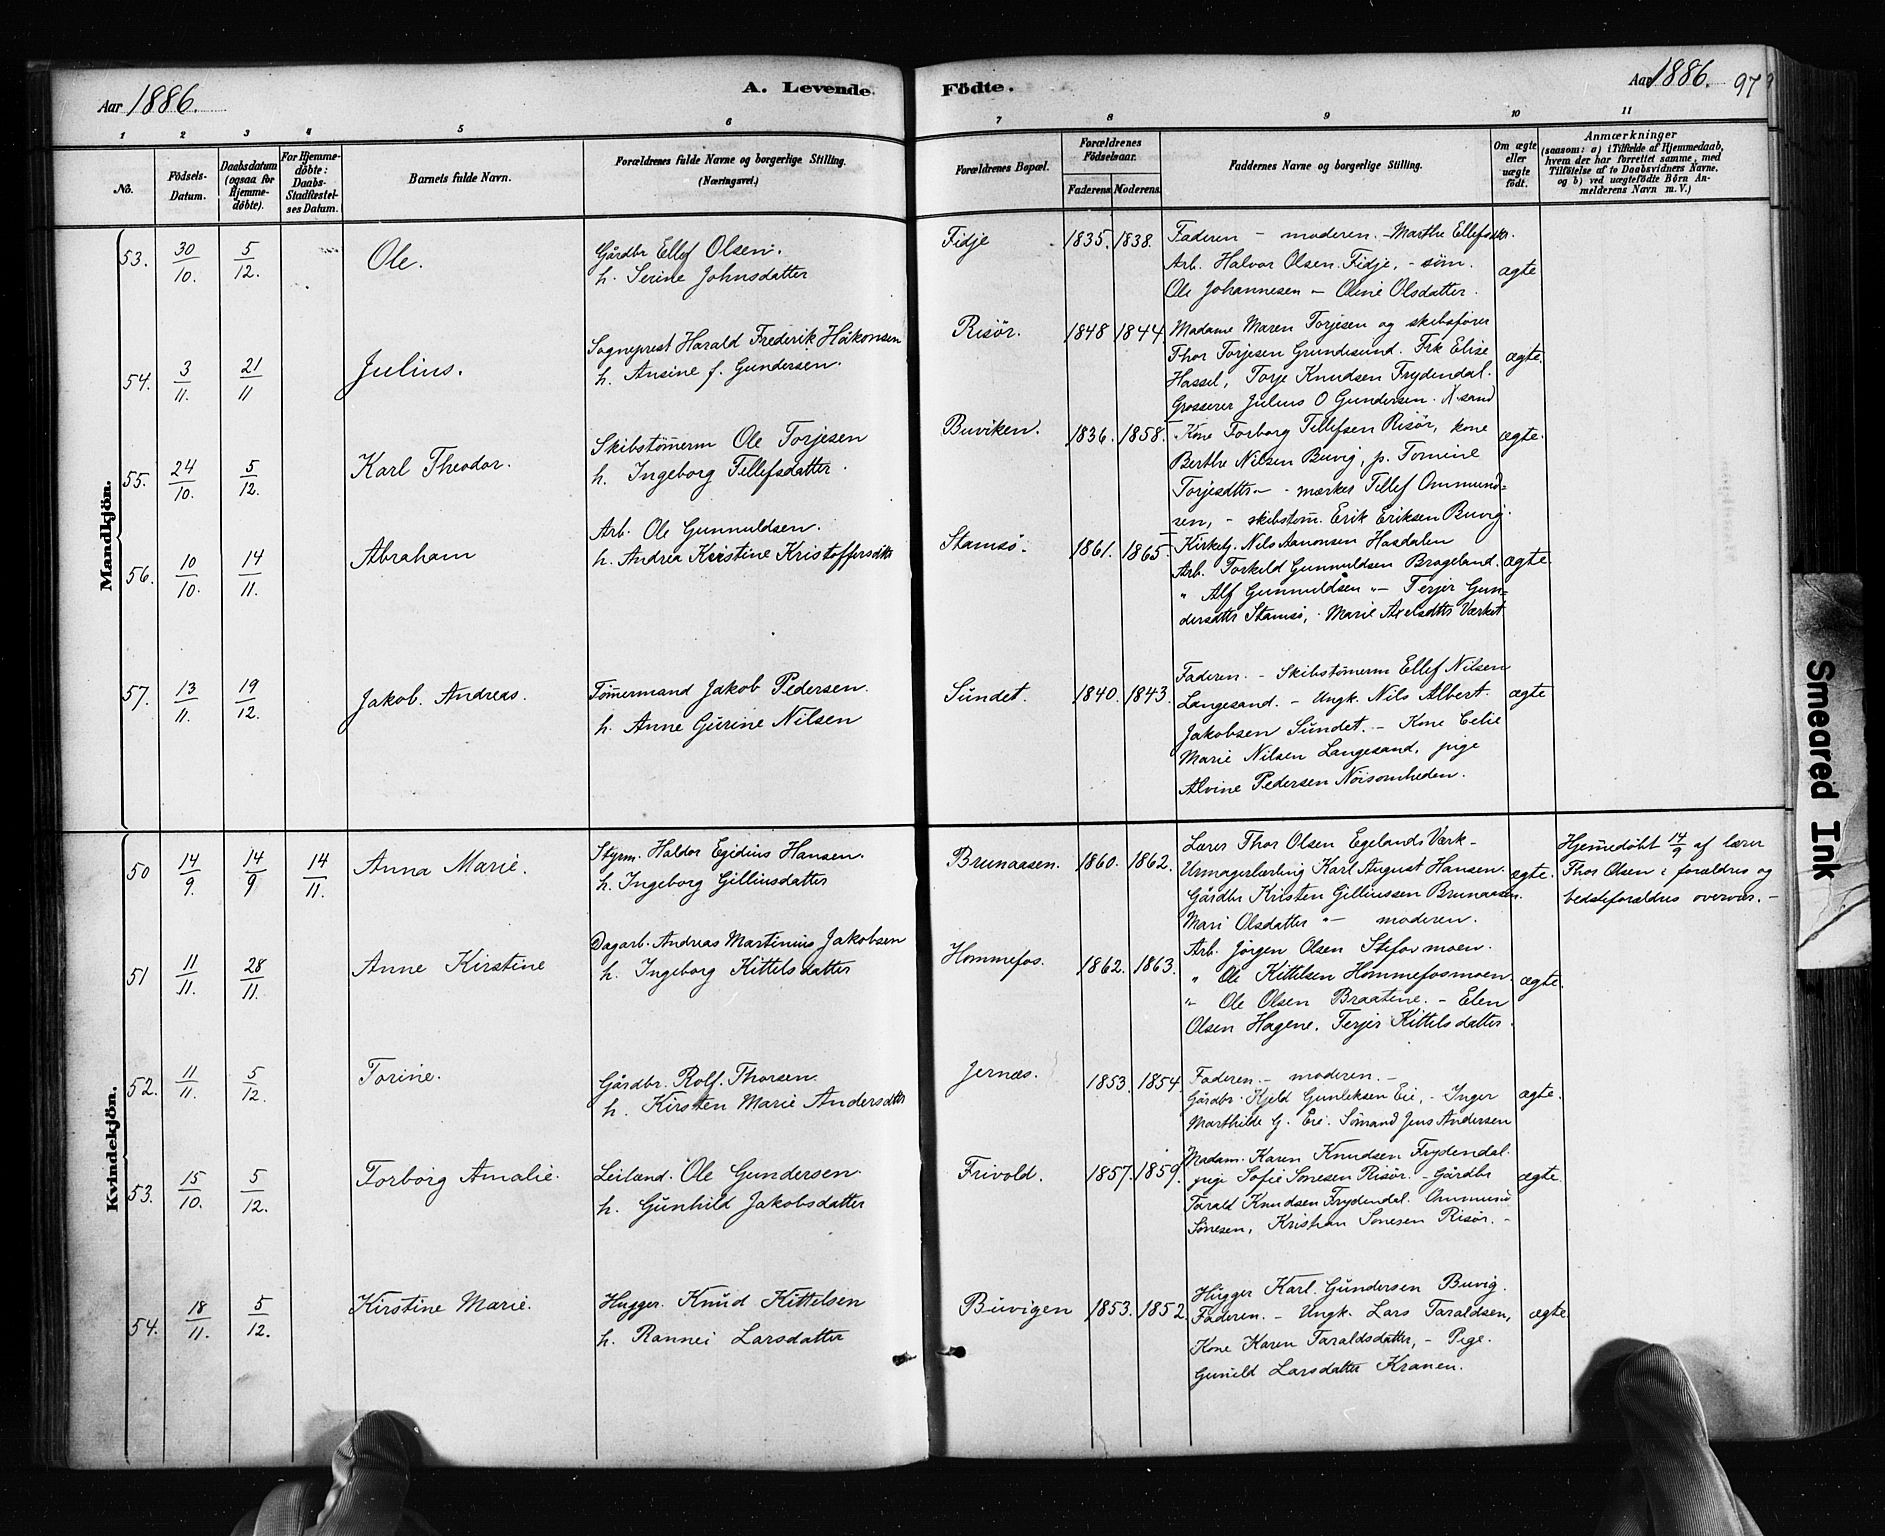 Aar 1886.
A. Levende Födte.
Aar 1886. 97
1 2 3 4 5 6 7 8 9 10 11
No.
Födsels-
Datum.
Daabsdatum
(ogsaa for
Hjemme-
döbte).
For Hjemme-
döbte:
Daabs-
Stadfæstel-
ses Datum.
Barnets fulde Navn.
Forældrenes fulde Navne og borgerlige Stilling.
(Næringsvei.)
Forældrenes Bopæl.
Forældrenes
Födselsaar.
Faderens. Moderens.
Faddernes Navne og borgerlige Stilling.
Om ægte
eller
uægte
födt.
Anmærkninger
(saasom: a) i Tilfælde af Hjemmedaab,
hvem der har forrettet samme, med
Tilföielse af to Daabsvidners Navne,
og b) ved uægtefödte Börn An-
melderens Navn m. V.)
Mandkjön.
53. 30/10. 5/12. Ole.
Gårdbr Ellef Olsen.
h. Serine Johnsdatter
Fidje 1835. 1838.
Faderen - moderen. - Marthe Ellefsdtr.
Arb. Halvor Olsen Fidje, - söm.
Ole Johannesen - Oline Olsdatter.
ægte
54. 3/11. 21/11 Julius.
Sogneprest Harald Frederik Håkonsen
h. Ansine f. Gundersen.
Risör. 1848 1844
Madame Maren Torjesen og skibsförer
Thor Torjesen Grundesund. Frk Elise
Hassel, Torje Knudsen Frydendal.
Grosserer Julius O Gundersen. X.sand
ægte.
55. 24/10. 5/12. Karl Theodor.
Skibstömerm Ole Torjesen
h. Ingeborg Tellefsdatter.
Buviken. 1836. 1858.
Kone Torborg Tellefsen Risör, kone
Berthe Nilsen Buvig, p. Tomine
Torjesdtr - - mærkes Tellef Ommund=
sen, - skibstöm. Erik Eriksen Buvig.
ægte.
56. 10/10. 14/11. Abraham
Arb. Ole Gunnuldsen.
h. Andrea Kristine Kristoffersdtr
Stamsö. 1861. 1865.
Kirkelj. Nils Aanonsen Hasdalen
Arb. Torkild Gunnuldsen Brogeland.
" Alf Gunnuldsen "- Terjer Gun=
dersdtr Stamsö, Marie Axelsdtr Værket
ægte.
57. 13/11. 19/12. Jakob Andreas.
Tömermand Jakob Pedersen.
h. Anne Gurine Nilsen
Sundet. 1840. 1843.
Faderen. - Skibstömerm Ellef Nilsen
Langesand. - Ungk. Nils Albert
Jakobsen Sundet. - Kone Celie
Marie Nilsen Langesand, pige
Alvine Pedersen Nöisomheden.
ægte
Kvindekjön.
50 14/9. 14/9 14/11. Anna Marie.
Styrm. Haldor Egidius Hansen.
h. Ingeborg Gilliusdatter
Brunaasen. 1860. 1862.
Lærer Thor Olsen Egelands Værk -
Urmagerlærling Karl August Hansen.
Gårdbr Kristen Gilliussen Brunaasen.
Mari Olsdatter "- moderen.
ægte.
Hjemmedöbt 14/9 af lærer
Thor Olsen i forældres og
bedsteforældres overvær. -
51 11/11. 28/11. Anne Kirstine
Dagarb. Andreas Martinius Jakobsen
h. Ingeborg Kittelsdatter
Hommefos. 1862. 1863.
Arb. Jörgen Olsen Stefarmoen.
" Ole Kittelsen Hommefosmoen.
" Ole Olsen Braatene. - Elen
Olsen Hagene. Terjer Kittelsdatter.
ægte.
52. 11/11. 5/12. Torine.
Gårdbr. Rolf Thorsen.
h. Kirsten Marie Andersdtr
Jernæs. 1853. 1854.
Faderen. - moderen. -
Gårdbr. Kjeld Gunleksen Eie, - Inger
Marthilde G. Eie. Sömand Jens Andersen
ægte.
53. 15/10. 5/12. Torborg Amalie.
Leilænd. Ole Gundersen.
h. Gunhild Jakobsdatter
Frivold. 1857. 1859.
Madam. Karen Knudsen Frydendal.
pige Sofie Sönesen Risör. - Gårdbr
Tarald Knudsen Frydendal. Ommund
Sönesen, Kristian Sönesen Risör. -
ægte.
54. 18/11. 5/12. Kirstine Marie.
Hugger. Knud Kittelsen
h. Rannei Larsdatter
Buvigen 1853. 1852.
Hugger Karl Gundersen Buvig.
Faderen. - Ungk. Lars Taraldsen,
Kone Karen Taraldsdatter, - Pige.
Gunild Larsdatter Kranen.
ægte
Smeared Ink